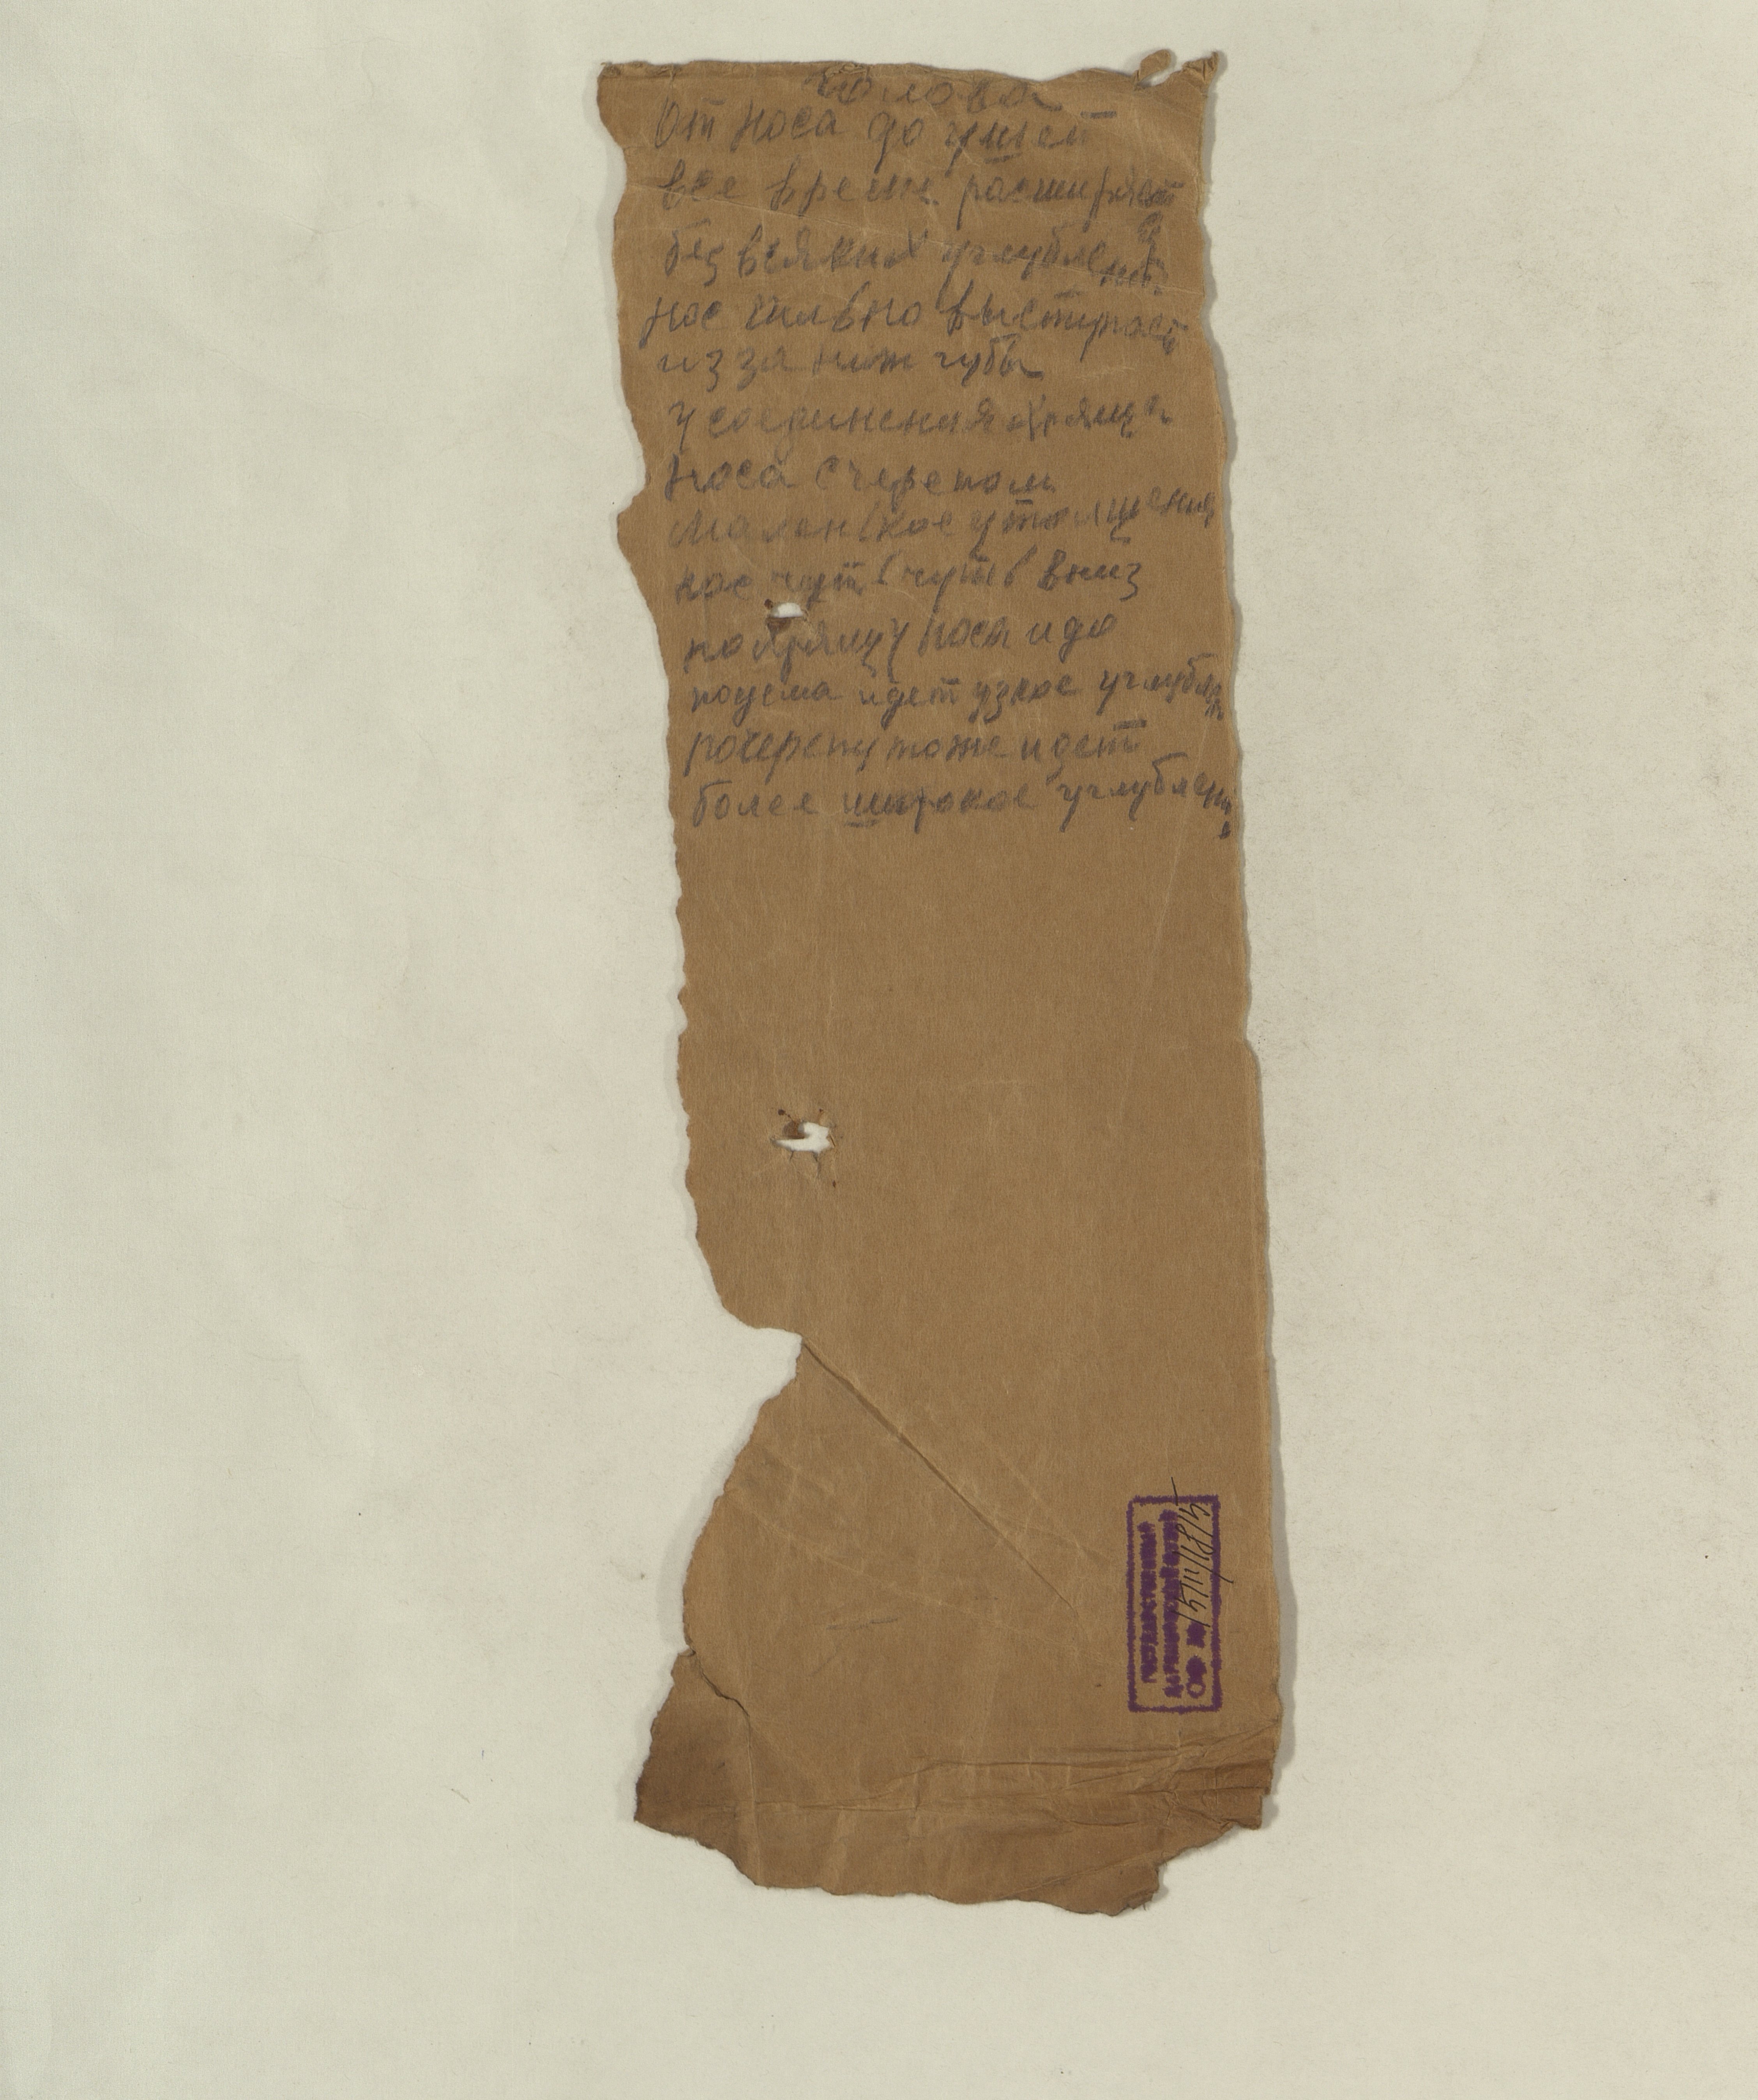 голова
От носа до ушей
все время расширяется
без всяких углублений
нос сильно выступает
из за ниж губы
у соединения хряща
носа с черепом
маленькое утолщение
нос чуть чуть вниз
по хрящу носа идо
идет узкое углубл
по черепу тоже идет
более широкое углублени
ГОСУДАРСТВЕННЫЙ
ДАРВИНОВСКИЙ МУЗЕЙ
ОФ №